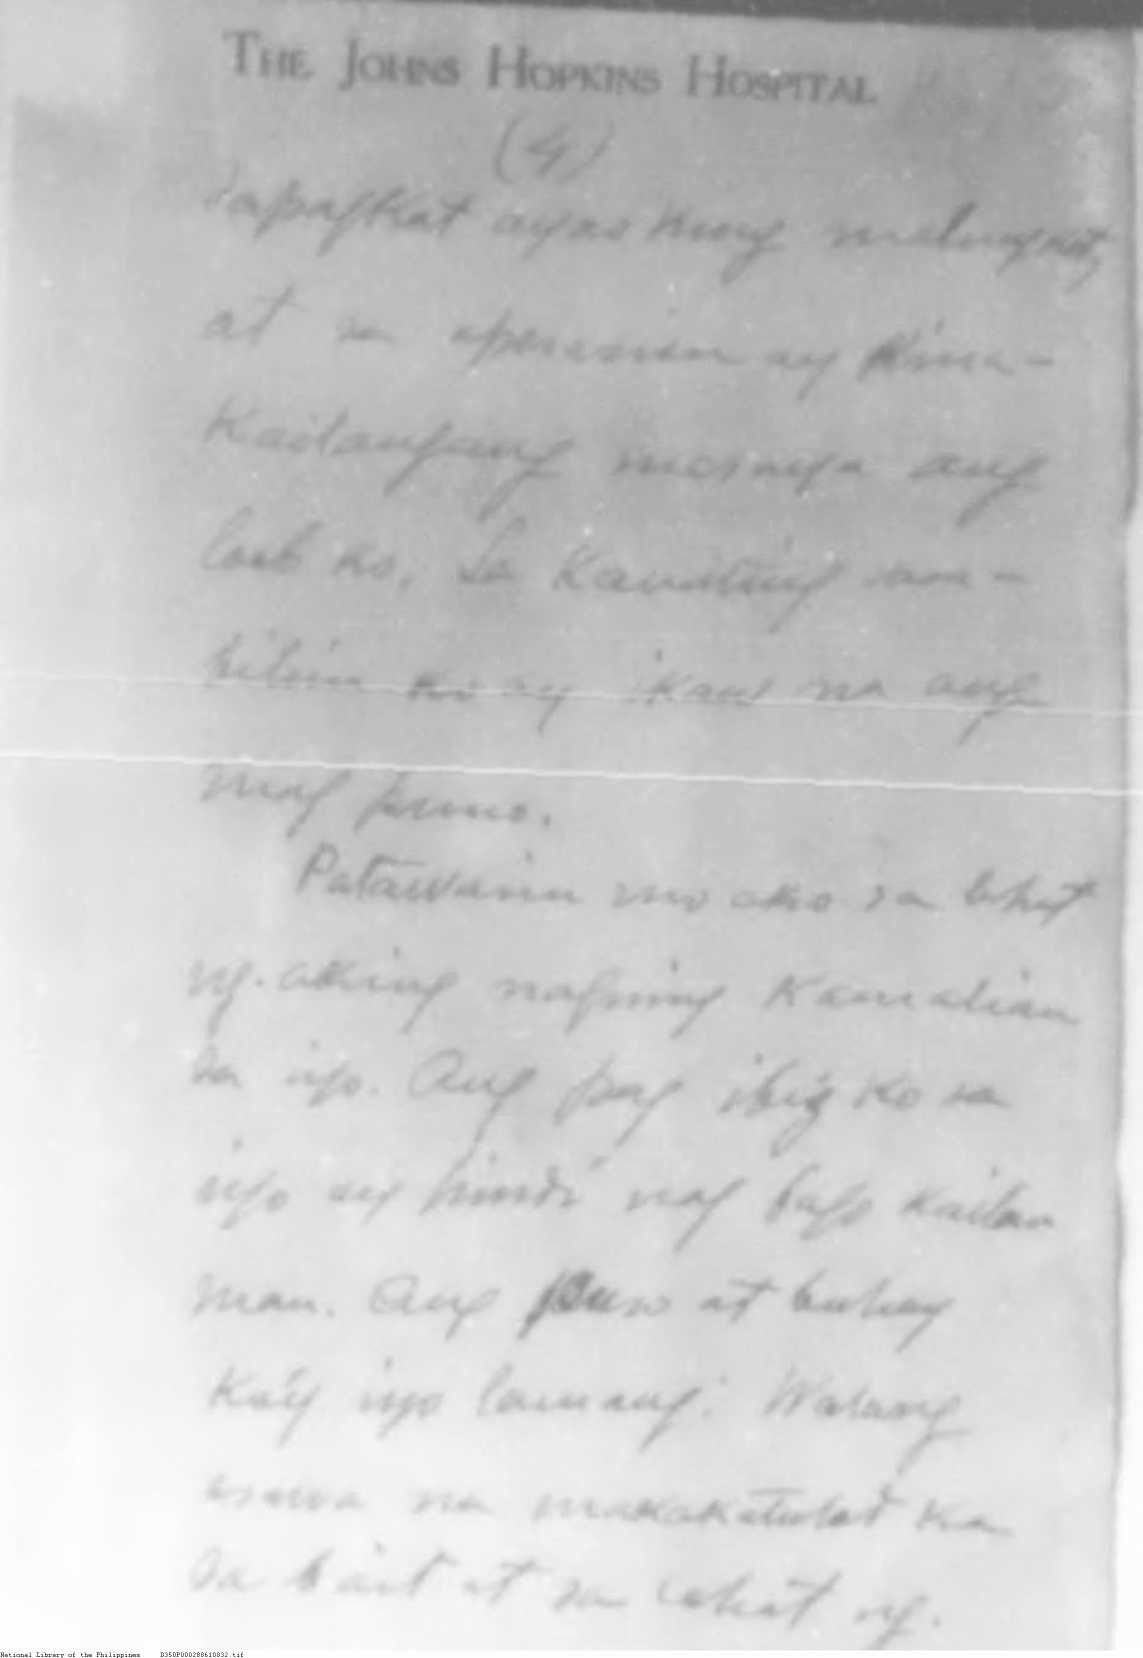 THE JOHNS HOPKINS HOSPITAL
(4)
sapagkat ayao kung malungkot,
at sa operasion ay kina-
kailangang masaya ang
loob ko. Sa kaunting na-
bilin ko ay ikaw na ang
mag puno.
Patawarin mo ako sa lahat
ng. aking naging kamalian
sa iyo. Ang pag ibig ko sa
iyo ay hindi nag bago kailan
man. Ang puso at buhay
ko'y iyo lamang. Walang
asawa na makakatulad ka
sa bait at sa lahat ng.
National Library of the Philippines D350P000288610032.tif